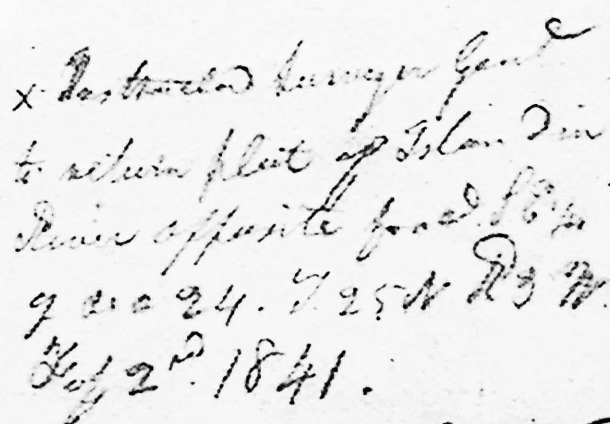 x Instructed Surveyor Genl
to return plat of Island in
River opposite
of Sec 24. T. 25 N R 3 W.
Feby 2nd. 1841.